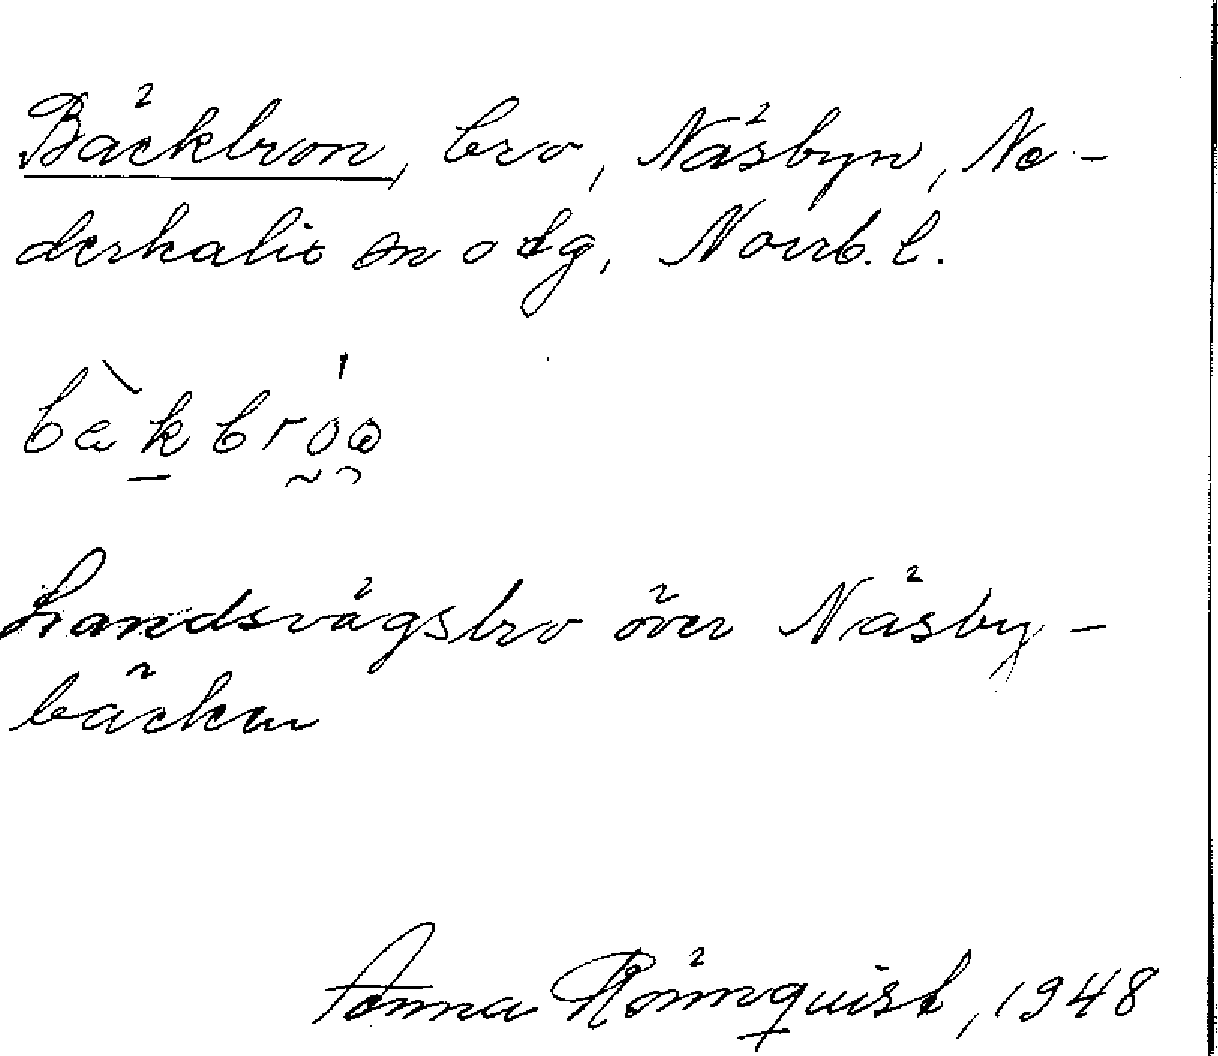 Bäckbron, bro, Näsbyn, Ne-
derkalix sn o tg, Norrb. l.
bàkbróa
Landsvägsbro över Näsby-
bäcken
Anna Rönnquist, 1948